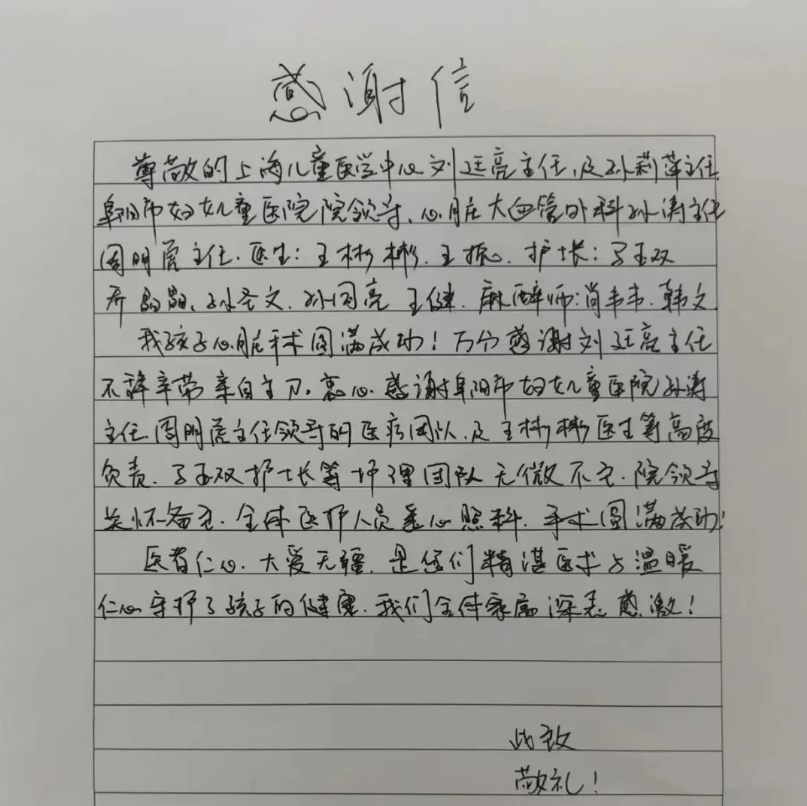 感谢信
尊敬的上海儿童医学中心刘廷亮主任,及孙莉萍主任
阜阳市妇女儿童医院院领导、心脏大血管外科孙涛主任
周明虎主任.医生:王彬彬.王振.护长:于玉双
齐晶晶.孙圣文.孙同亮 王健.麻醉师:肖韦韦.韩文
我孩子心脏手术圆满成功!万分感谢刘廷亮主任
不辞辛劳亲自主刀。衷心感谢阜阳市妇女儿童医院孙涛
主任周明虎主任领导的医疗团队及王彬彬医生等高度
负责.于玉双护长等护理团队无微不至.院领导
关怀备至.全体医护人员悉心照料.手术圆满成功!
医者仁心.大爱无疆.是您们精湛医术与温暖
仁心守护了孩子的健康.我们全体家属深表感激!
此致
敬礼!